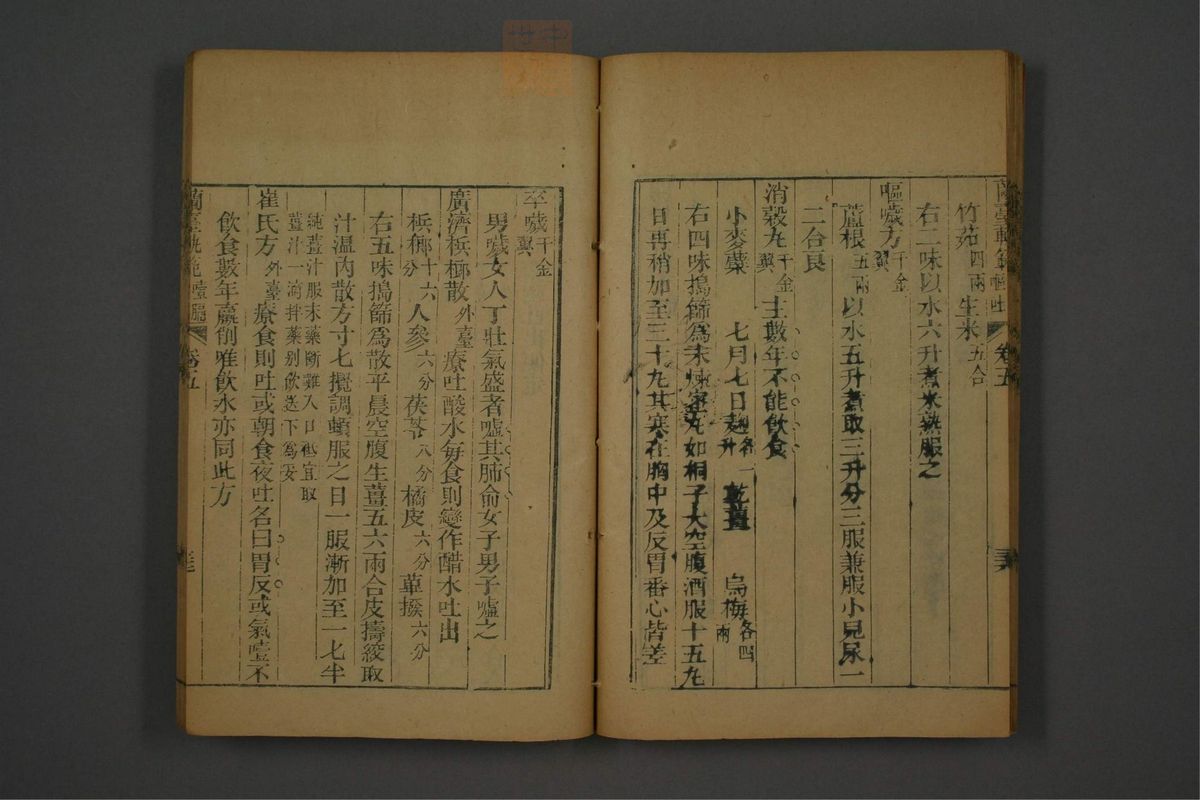 竹茹四兩生米五合
右二味以水六升煮米熟服之
嘔噦方千金翼
蘆根五兩以水五升煮取三升分三服兼服小兒尿一
二合良
消穀丸千金翼主數年不能飲食
小麥蘗 七月七日麴各一升 乾薑 烏梅各四兩
右四味搗篩為末煉蜜丸如桐子大空腹酒服十五丸
日再稍加至三十丸其寒在胸中及反胃番心皆差
卷五
卒噦千金翼
男噦女人丁壯氣盛者噓其肺俞女子男子噓之
廣濟梹榔散外臺療吐酸水每食則變作醋水吐出
梹榔十六分 人參六分 茯苓八分 橘皮六分 蓽撥六分
右五味搗篩為散平晨空腹生薑五六兩合皮擣絞取
汁溫內散方寸匕攪調頓服之日一服漸加至一匕半
純薑汁服末藥斷難入口祗宜取
薑汁一滴拌藥別飲送下為妥
崔氏方外臺療食則吐或朝食夜吐名曰胃反或氣噎不
飲食數年羸削唯飲水亦同此方
蘭臺軌範噎膈 卷五